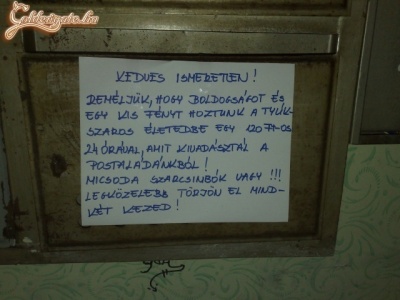 Gabdszigete.hu
KEDVES ISMERETLEN!
REMÉLJÜK, HOGY BOLDOGSÁGOT ÉS
EGY KIS FÉNYT HOZTUNK A TYÚK-
SZAROS ÉLETEDBE EGY 120 Ft-OS
24 ÓRÁVAL, AMIT KIVADÁSZTÁL A
POSTALÁDÁNKBÓL!
MICSODA SZARCSINBÓK VAGY!!!
LEGKÖZELEBB TÖRJÖN EL MIND-
KÉT KEZED!